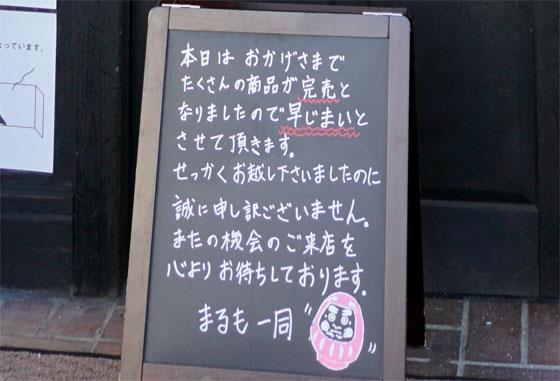 なっています。
本日は おかげさまで
たくさんの商品が完売と
なりましたので早じまいと
させて頂きます。
せっかくお越し下さいましたのに
誠に申し訳ございません。
またの機会のご来店を
心よりお待ちしております。
まるも一同